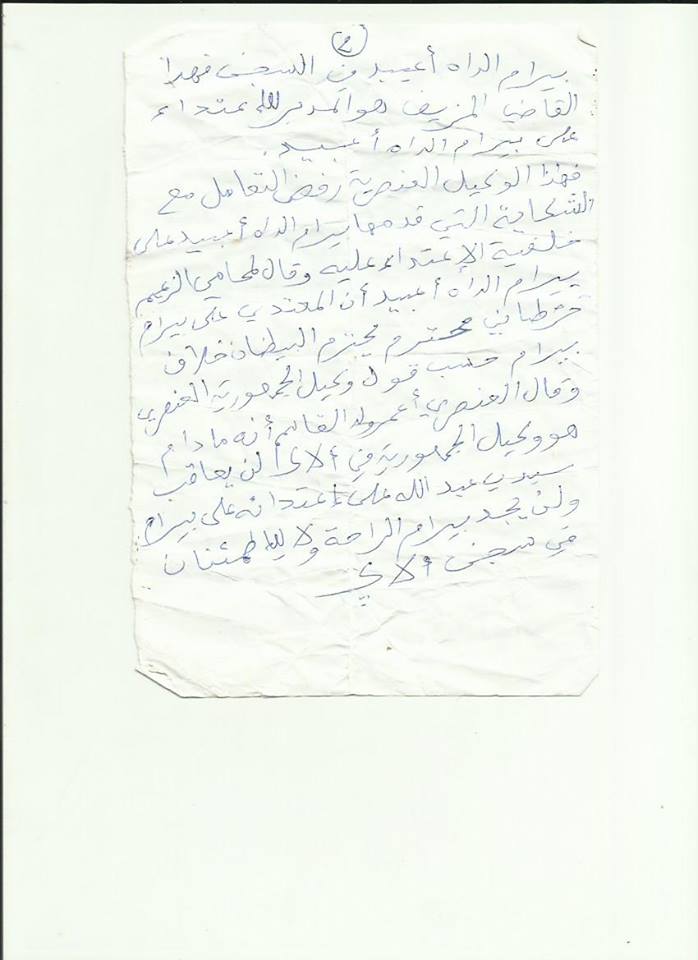 2
بيرام الداه أعبيد في السجن فهذا
القاضيا المزيف هو المدبر للإعتداء
على بيرام الداه أعبيد.
فهذا الوكيل العنصرية رفض التعامل مع
الشكاية التي قدمها بيرام الداه أعبيد على
خلفية الإعتداء عليه وقال لمحامي الزعيم
بيرام الداه أعبيد أن المعتدي على بيرام
محترم يحترم البيظان خلاف
بيرام حسب قول وكيل الجمهورية العنصري
وقال العنصري أعمر ولد القاسم أنه مادام
هو وكيل الجمهورية في ألاك لن يعاقب
سيدي عبد الله على إعتدائه على بيرام
ولن يجد بيرام الراحة ولا الإطمئنان
في سجن ألاك